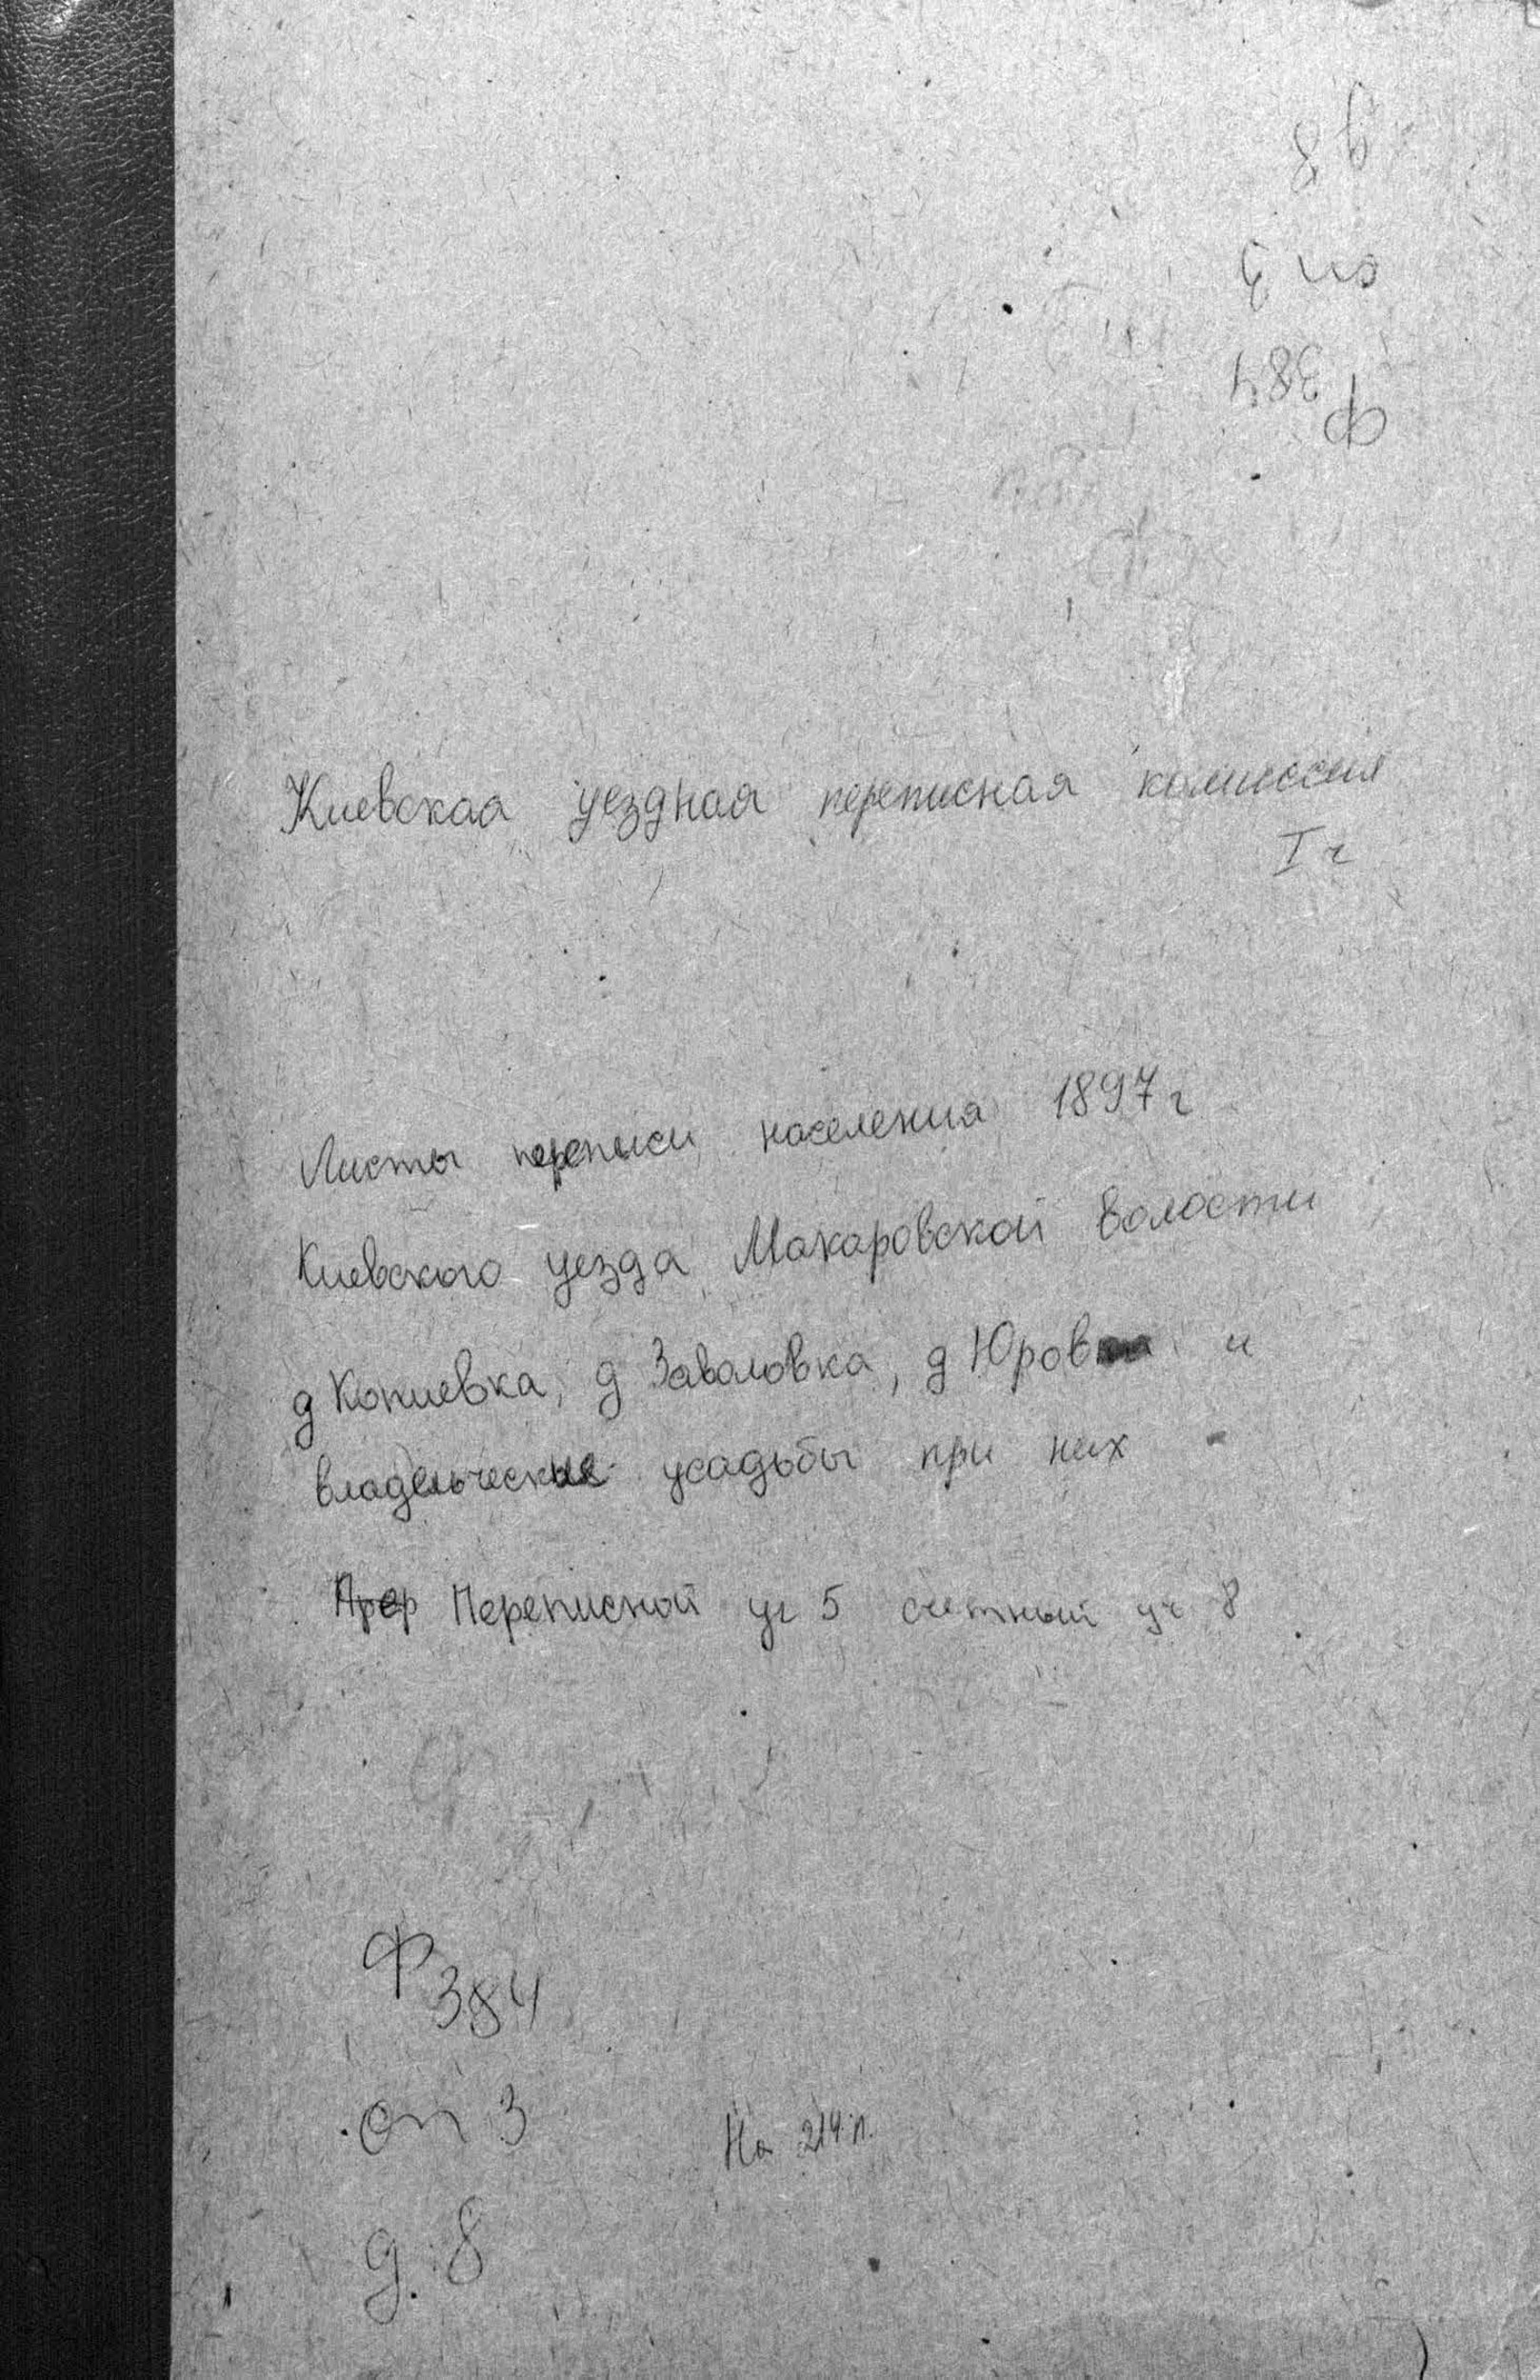 д 8
оп 3
Ф 384
Киевская уездная переписная комиссия
I ч
Листы переписи населения 1897 г
Киевского уезда Макаровской волости
д Копиевка, д Заваловка, д Юров и
владельческие усадьбы при них
Прер Переписной уч 5 счетный уч 8
Ф 384
оп 3
На 214 л.
д. 8